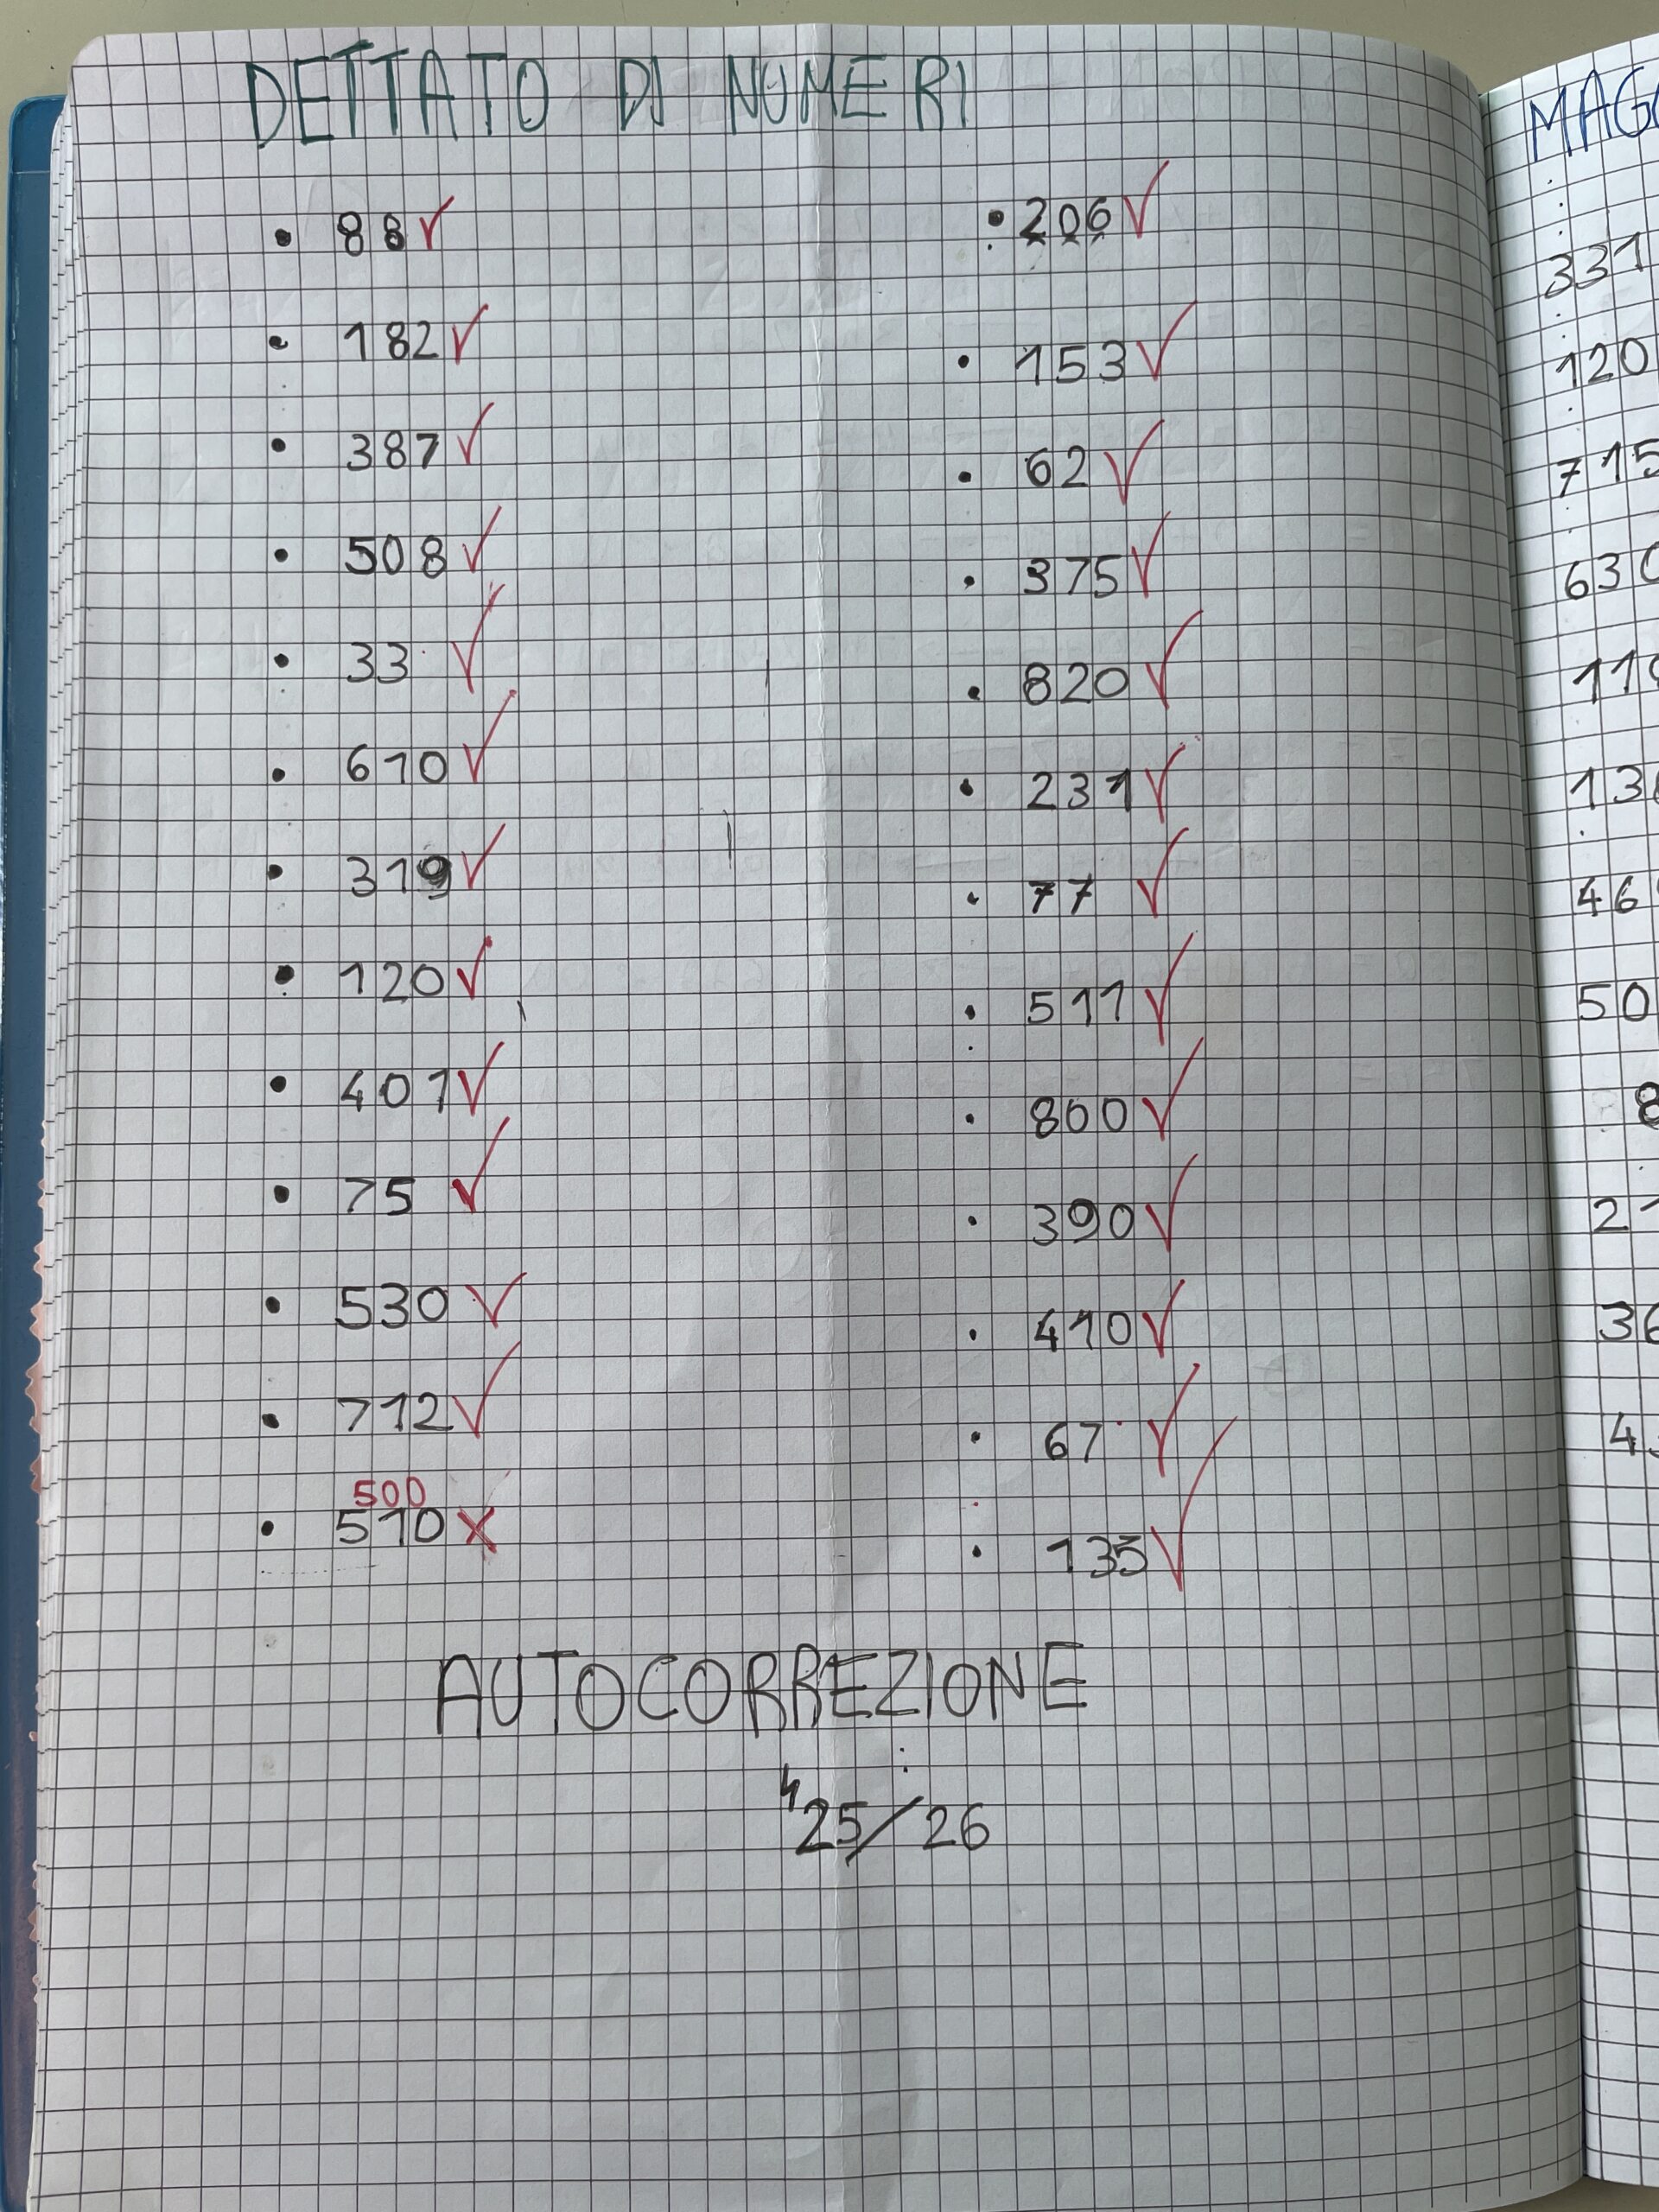 DETTATO DI NUMERI
• 88 ✓
• 182 ✓
• 387 ✓
• 508 ✓
• 33 ✓
• 610 ✓
• 319 ✓
• 120 ✓
• 401 ✓
• 75 ✓
• 530 ✓
• 712 ✓
500
• 510 ✗
• 206 ✓
• 153 ✓
• 62 ✓
• 375 ✓
• 820 ✓
• 231 ✓
• 77 ✓
• 511 ✓
• 800 ✓
• 390 ✓
• 410 ✓
• 67 ✓
• 135 ✓
AUTOCORREZIONE
25/26
MAG
331
120
715
630
11
13
46
50
8
21
36
4